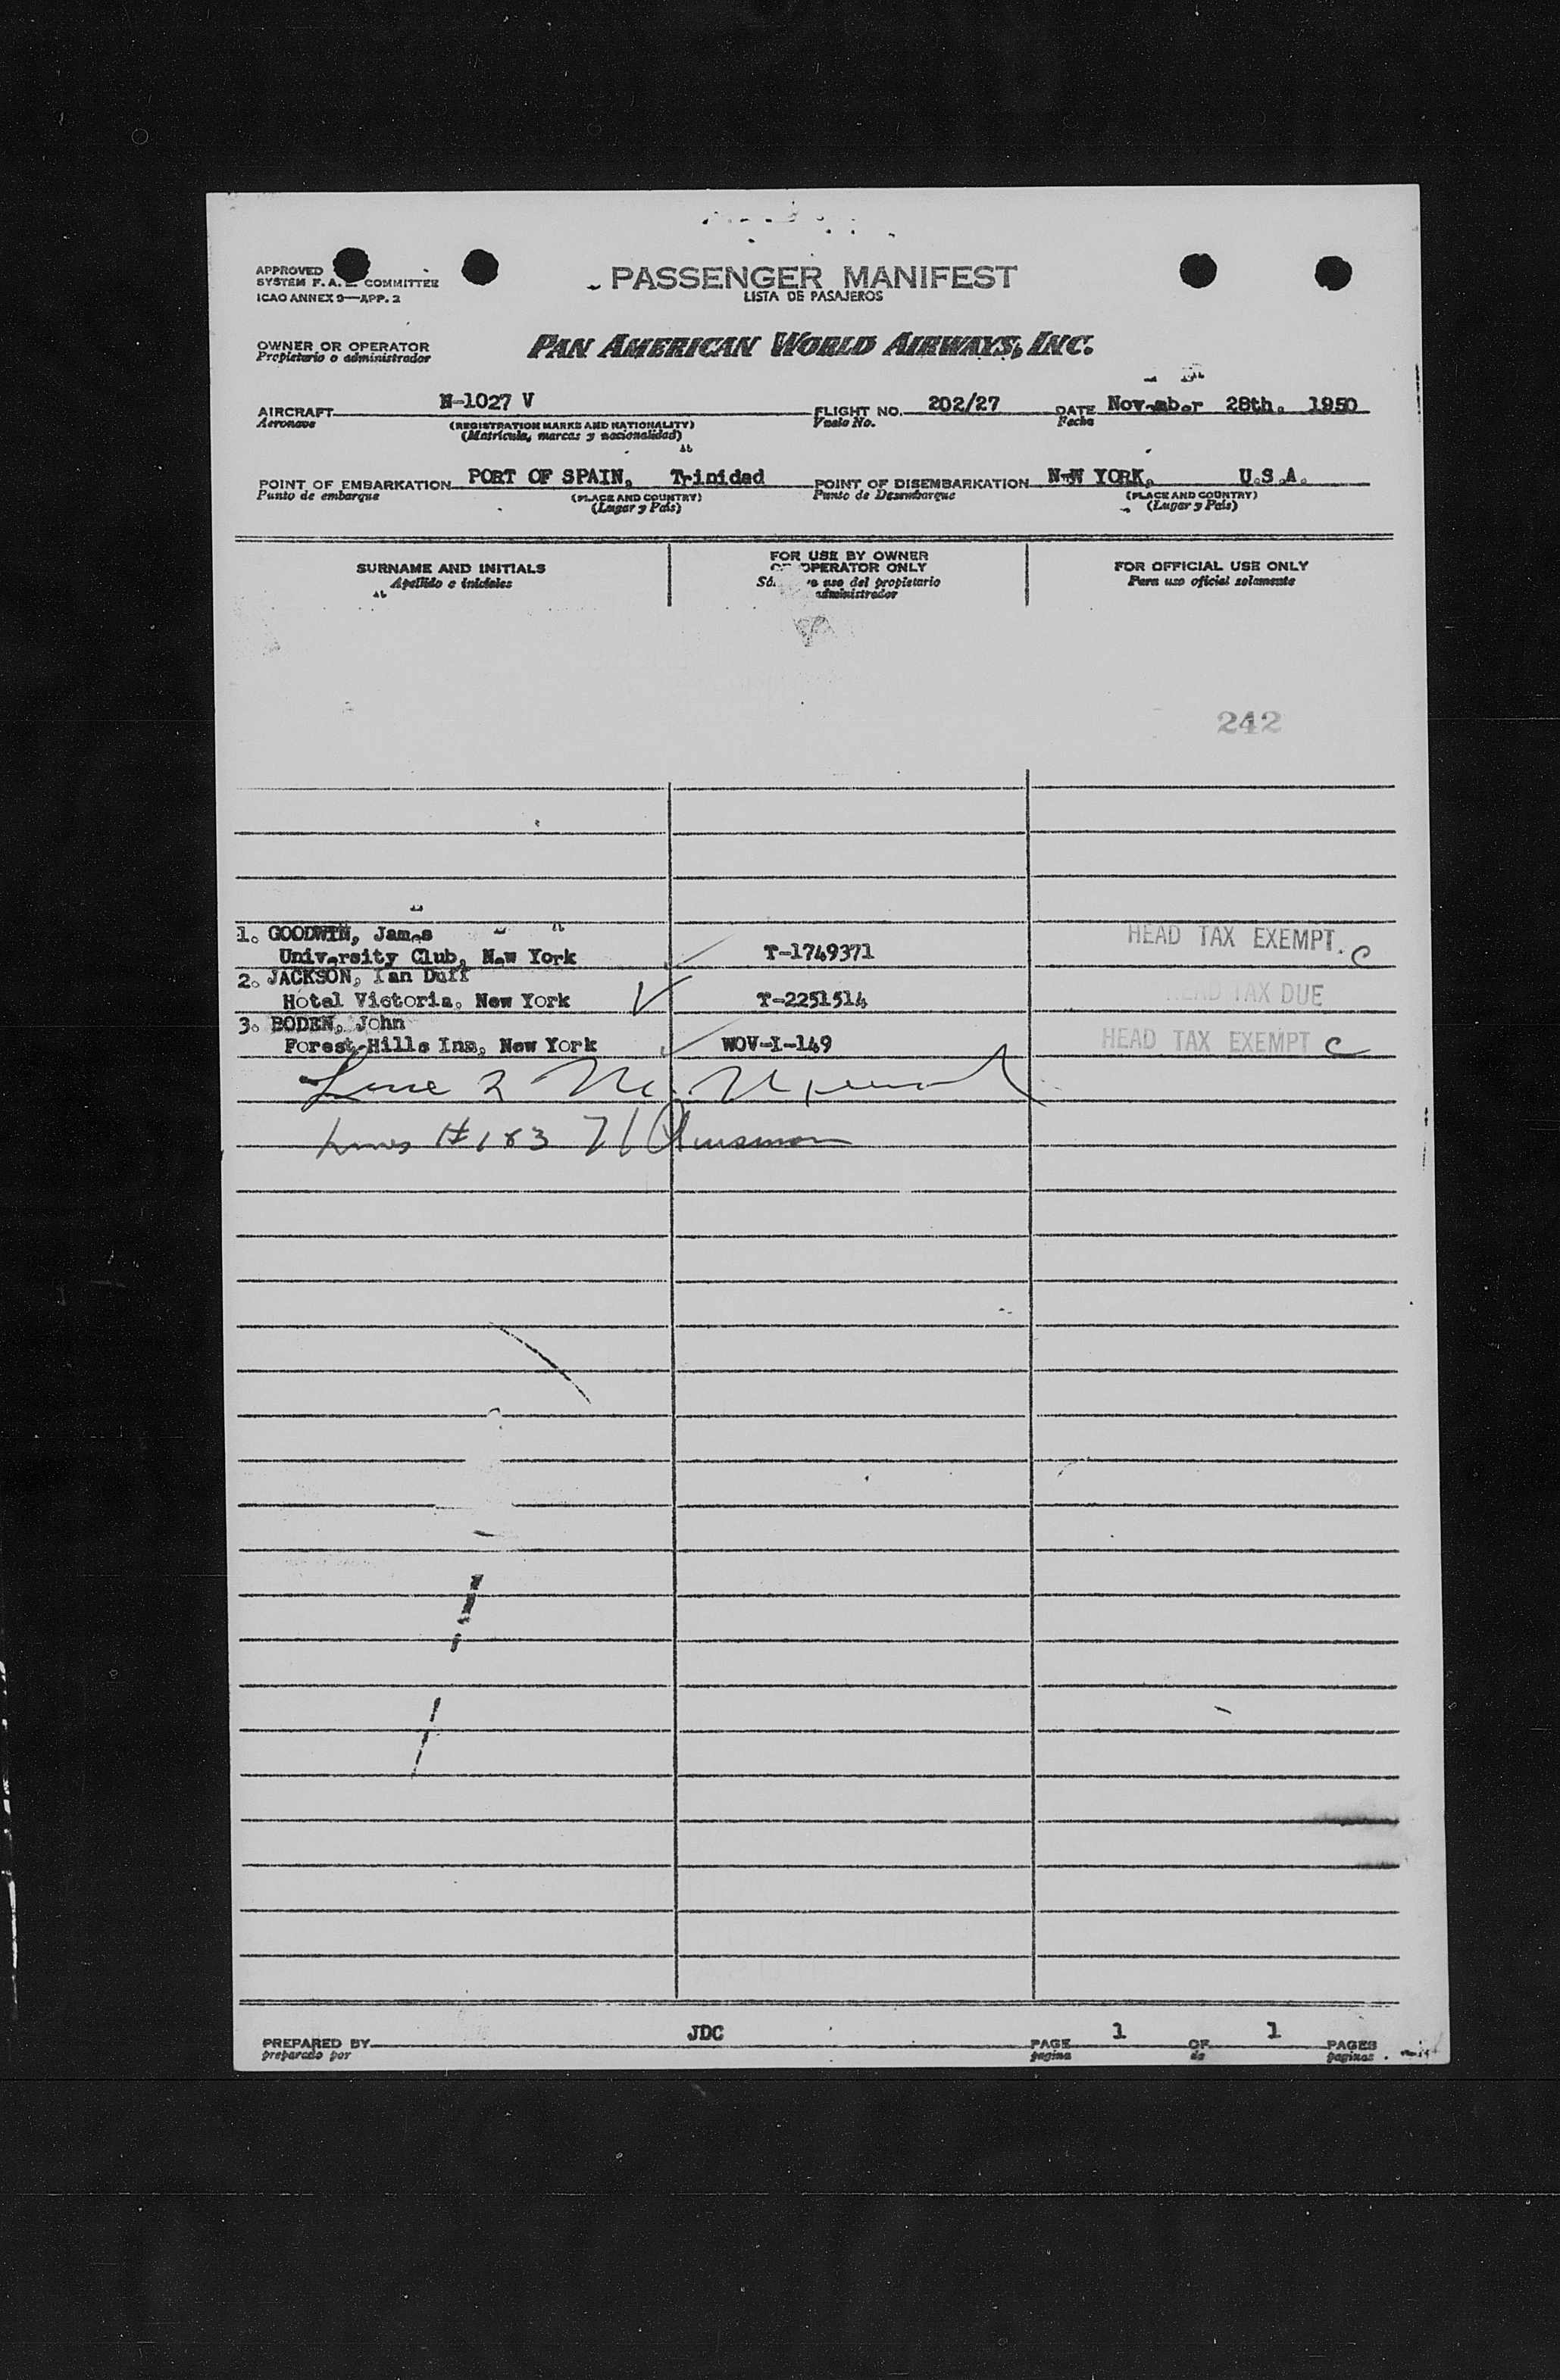 APPROVED
SYSTEM F. A. COMMITTEE
ICAO ANNEX 9—APP. 2
PASSENGER MANIFEST
LISTA DE PASAJEROS
OWNER OR OPERATOR
Propietario o administrador
PAN AMERICAN WORLD AIRWAYS, INC.
AIRCRAFT N-1027 V FLIGHT NO. 202/27 DATE November 28th. 1950
Aeronave (REGISTRATION MARKS AND NATIONALITY) Vuelo No. Fecha
(Matrícula, marcas y nacionalidad)
POINT OF EMBARKATION PORT OF SPAIN, Trinidad POINT OF DISEMBARKATION NEW YORK, U.S.A.
Punto de embarque (PLACE AND COUNTRY) Punto de Desembarque (PLACE AND COUNTRY)
(Lugar y País) (Lugar y País)
SURNAME AND INITIALS FOR USE BY OWNER FOR OFFICIAL USE ONLY
Apellido e iniciales OR OPERATOR ONLY Para uso oficial solamente
uso del propietario
administrador
242
1. GOODWIN, James HEAD TAX EXEMPT. C
University Club, New York T-1749371
2. JACKSON, Ian Duff
Hotel Victoria, New York T-2251514 HEAD TAX DUE
3. BODEN, John
Forest-Hills Inn, New York WOV-I-149 HEAD TAX EXEMPT C
Line 2
Lines # 1 & 3
PREPARED BY JDC PAGE 1 OF 1 PAGES
preparado por pagina de paginas